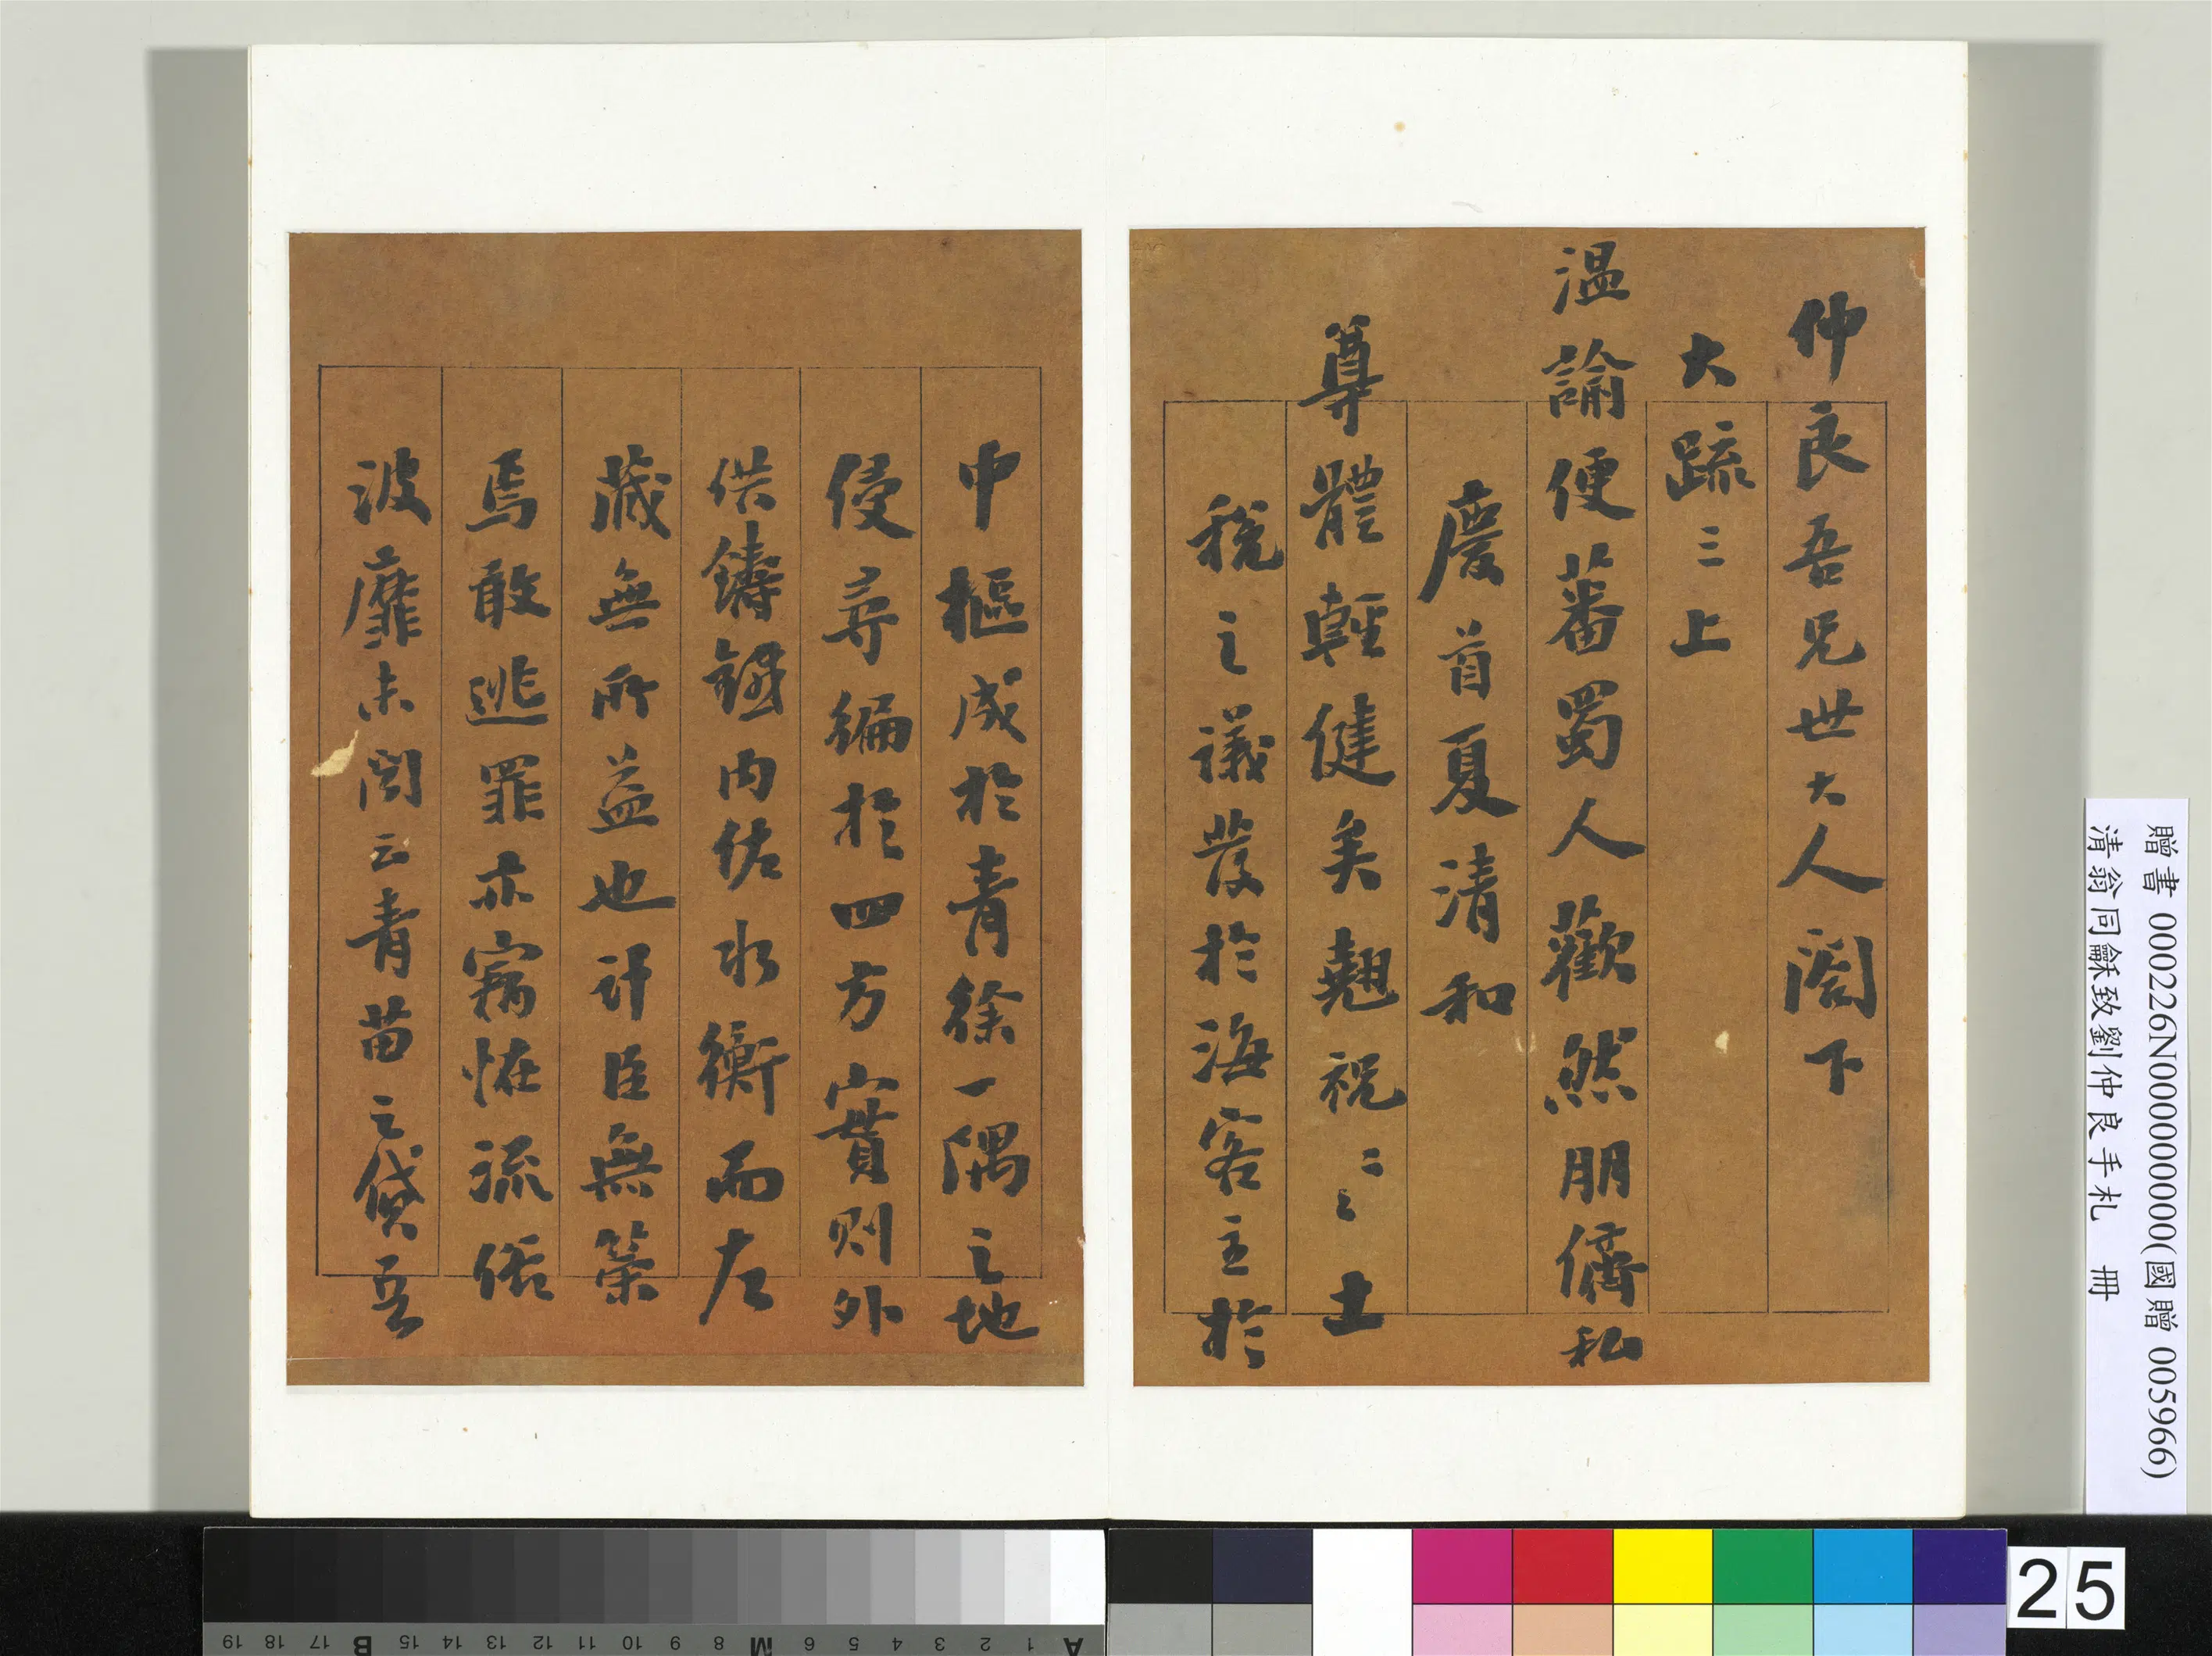 仲良吾兄世大人閣下
大疏三上
温諭便蕃蜀人歡然朋儕私
慶首夏清和
尊體輕健美翹祝〻〻土
税之議發於海客主於
中樞成於青徐一隅之地
侵尋編於四方實則外
供鑄內佐水衡而左
藏無所益也計臣無策
焉敢逃罪亦竊恠流俗
波靡未青苗之貸吾
贈書 000226N000000000(國贈 005966)
清翁同龢致劉仲良手札 冊
25
A 1 2 3 4 5 6 M 8 9 10 11 12 13 14 15 B 17 18 19